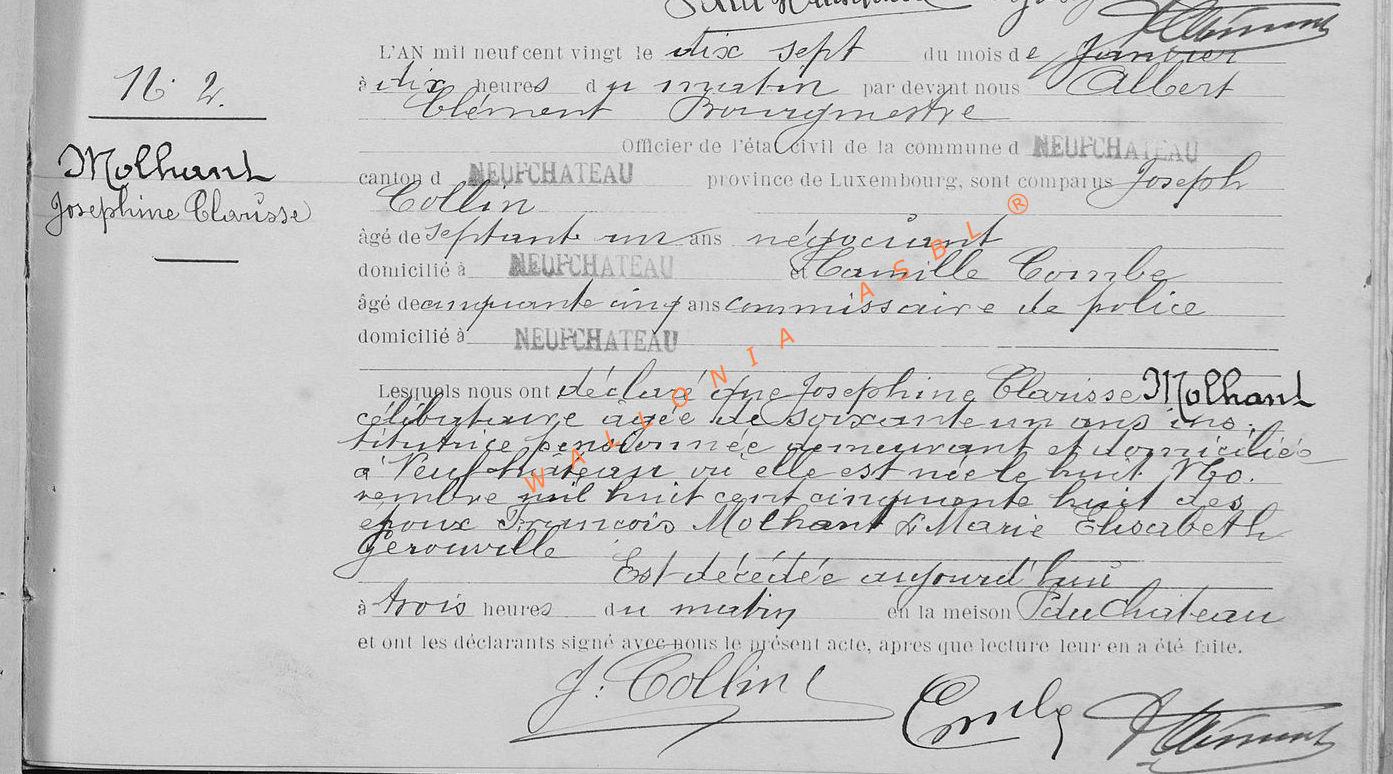 L'AN mil neuf cent vingt le dix sept du mois de Janvier
N° 2.
à dix heures du matin par devant nous Albert
Clément Bourgmestre
Officier de l'état civil de la commune d NEUFCHATEAU
Molhant
canton d NEUFCHATEAU province de Luxembourg, sont comparus Joseph
Josephine Clarisse
Collin
âgé de septante un ans négociant
domicilié à NEUFCHATEAU et Camille Combe
âgé de cinquante cinq ans commissaire de police
domicilié à NEUFCHATEAU
WALLONIA ASBL ®
Lesquels nous ont déclaré que Josephine Clarisse Molhant
célibataire âgée de soixante un ans ins-
titutrice pensionnée demeurant et domiciliée
à Neufchâteau où elle est née le huit No-
vembre mil huit cent cinquante huit des
époux François Molhant & Marie Elisabeth
Gerouville
Est décédée aujourd'hui
à trois heures du matin en la meison du Chateau
et ont les déclarants signé avec nous le présent acte, apres que lecture leur en a été faite.
J. Collin
AClément